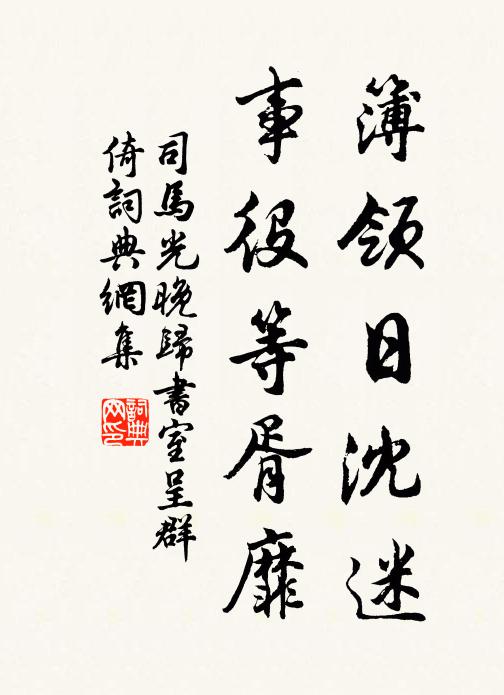 簿領日沈迷
事役等胥靡
司馬光晚歸書室呈群
倚詞典網集
詞典
网印